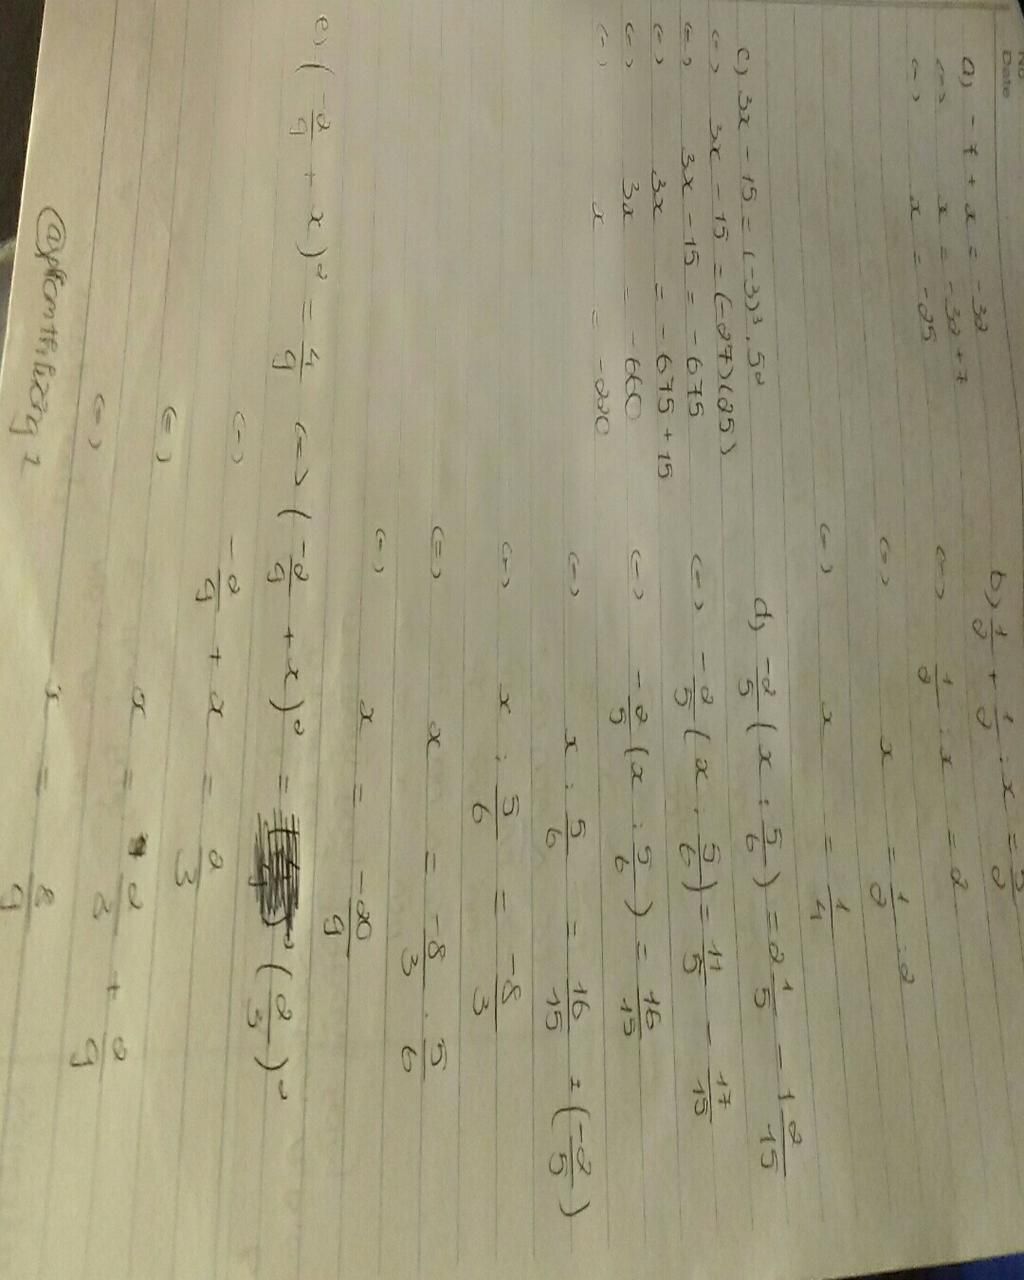 No
Date
a) -7 + x = -32
(=) x = -32 + 7
(=) x = -25
b) 1/2 + 1/2 : x = 5/2
(=) 1/2 : x = 2
(=) x = 1/2 : 2
(=) x = 1/4
c) 3x - 15 = (-3)³ . 5²
(=) 3x - 15 = (-27)(25)
(=) 3x - 15 = -675
(=) 3x = -675 + 15
(=) 3x = -660
(=) x = -220
d) -2/5 (x : 5/6) = 2 1/5 - 1 2/15
(=) -2/5 (x : 5/6) = 11/5 - 17/15
(=) -2/5 (x : 5/6) = 16/15
(=) x : 5/6 = 16/15 : (-2/5)
(=) x : 5/6 = -8/3
(=) x = -8/3 . 5/6
(=) x = -20/9
e) (-2/9 + x)² = 4/9 (=) (-2/9 + x)² = (2/3)²
(=) -2/9 + x = 2/3
(=) x = 2/3 + 2/9
(=) x = 8/9